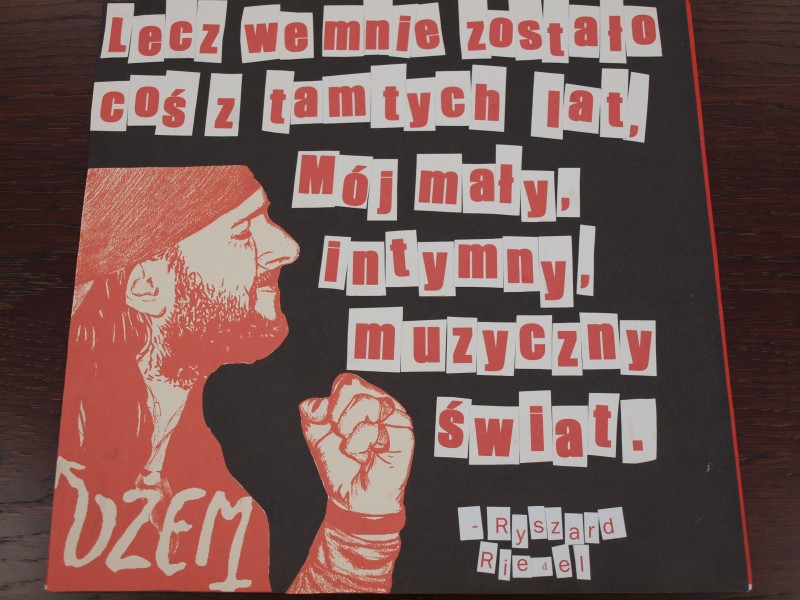 Lecz we mnie zostało
coś z tamtych lat,
Mój mały,
intymny,
muzyczny
świat.
- Ryszard
Riedel
DŻEM